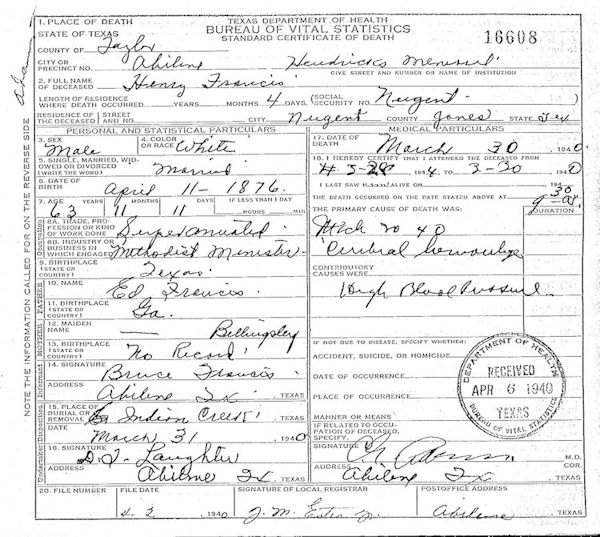 1. PLACE OF DEATH
TEXAS DEPARTMENT OF HEALTH
BUREAU OF VITAL STATISTICS
STANDARD CERTIFICATE OF DEATH
16608
STATE OF TEXAS
COUNTY OF Taylor
CITY OR PRECINCT NO. Abilene Hendricks Memorial
GIVE STREET AND NUMBER OR NAME OF INSTITUTION
2. FULL NAME OF DECEASED Henry Francis
LENGTH OF RESIDENCE WHERE DEATH OCCURRED YEARS MONTHS 4 DAYS (SOCIAL SECURITY NO. Nugent
RESIDENCE OF THE DECEASED STREET AND NO. CITY Nugent COUNTY Jones STATE Tex
PERSONAL AND STATISTICAL PARTICULARS
3. SEX Male
4. COLOR OR RACE White
5. SINGLE, MARRIED, WIDOWED OR DIVORCED (WRITE THE WORD) Married
6. DATE OF BIRTH April 11 - 1876.
7. AGE YEARS MONTHS DAYS IF LESS THAN 1 DAY
63 11 11 HOURS MIN
8A. TRADE, PROFESSION OR KIND OF WORK DONE Superannuated
8B. INDUSTRY OR BUSINESS IN WHICH ENGAGED Methodist Minister
9. BIRTHPLACE (STATE OR COUNTRY) Texas
10. NAME Ed Francis
11. BIRTHPLACE (STATE OR COUNTRY) Ga.
12. MAIDEN NAME — Billingsley
13. BIRTHPLACE (STATE OR COUNTRY) No Record
14. SIGNATURE Bruce Francis
ADDRESS Abilene Tx. TEXAS
15. PLACE OF BURIAL OR REMOVAL Indian Creek
DATE March 31 1940
16. SIGNATURE Laughter
ADDRESS Abilene Tx TEXAS
MEDICAL PARTICULARS
17. DATE OF DEATH March 30, 1940
18. I HEREBY CERTIFY THAT I ATTENDED THE DECEASED FROM
3-30 1940
I LAST SAW H ALIVE ON
THE DEATH OCCURRED ON THE DATE STATED ABOVE AT 9-30
THE PRIMARY CAUSE OF DEATH WAS: DURATION
Mch 30 40
Cerebral hemorrhage
CONTRIBUTORY CAUSES WERE:
High Blood Pressure.
IF NOT DUE TO DISEASE, SPECIFY WHETHER:
ACCIDENT, SUICIDE, OR HOMICIDE
DATE OF OCCURRENCE
PLACE OF OCCURRENCE
MANNER OR MEANS
IF RELATED TO OCCUPATION OF DECEASED, SPECIFY.
SIGNATURE M.D. COR.
ADDRESS Abilene Tx TEXAS
DEPARTMENT OF HEALTH
RECEIVED
APR 6 1940
TEXAS
BUREAU OF VITAL STATISTICS
20. FILE NUMBER
FILE DATE 4-2 1940
SIGNATURE OF LOCAL REGISTRAR
POSTOFFICE ADDRESS
Abilene
NOTE THE INFORMATION CALLED FOR ON THE REVERSE SIDE
Occupation
FATHER
MOTHER
Informant
Disposition
Undertaker